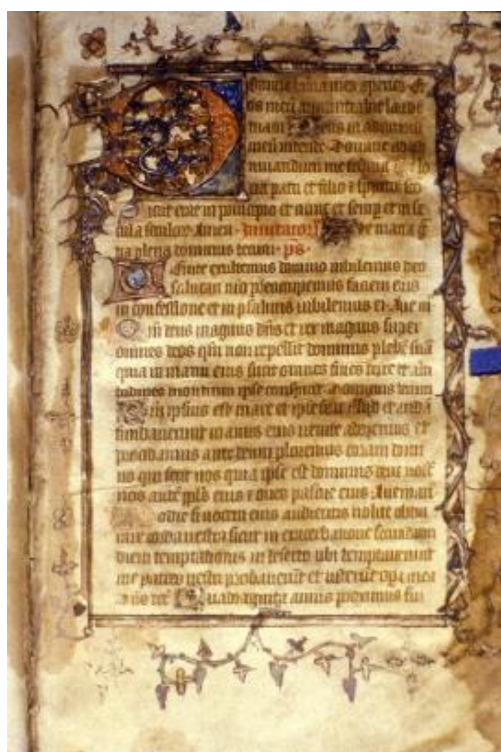 omine labia mea aperies Et
os meū annuntiabit laudē
tuam Deus in adiutoriū
meū intende Domine ad ad
iuuandum me festina
ria patri et filio et spiritui sco
Sicut erat in principio et nunc et semp et in se
cula seculor Amen
na plena dominus tecum ps
enite exultemus domino iubilemus deo
salutari nro preoccupemus faciem eius
in confessione et in psalmis iubilemus ei Aue m
Qm deus magnus dns et rex magnus super
omnes deos qm non repellit dominus plebē suā
quia in manu eius sunt omnes fines terre et alti
tudines montium ipse conspicit Dominus tecum
ipsius est mare et ipse fecit illud et aridā
fundauerunt manus eius uenite adoremus et
procidamus ante deum ploremus coram domi
no qui fecit nos quia ipse est dominus deus nost
nos autē ppls eius et oues pascue eius Aue mari
odie si uocem eius audieritis nolite obdu
rare corda uestra sicut in exacerbatione secundum
diem temptationis in deserto ubi temptauerunt
me patres uestri probauerūt et uiderūt opa mea
Quadraginta annis proximus fui